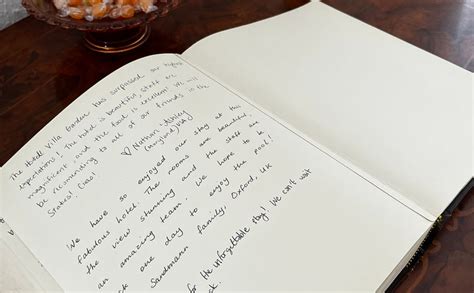 The Hotel Villa Garden has surpassed our highest
expectations! The hotel is beautiful, staff are
magnificent, and the food is excellent! We will
be recommending to all of our friends in the
States! Ciao!
♡ Nathan + Ashley
(Maryland) May
We have so enjoyed our stay at this
fabulous hotel. The rooms are beautiful,
the view stunning and the staff are
an amazing team. We hope to be
back one day to enjoy the pool!
Sandmann family, Oxford, UK
for the unforgettable stay! We can't wait